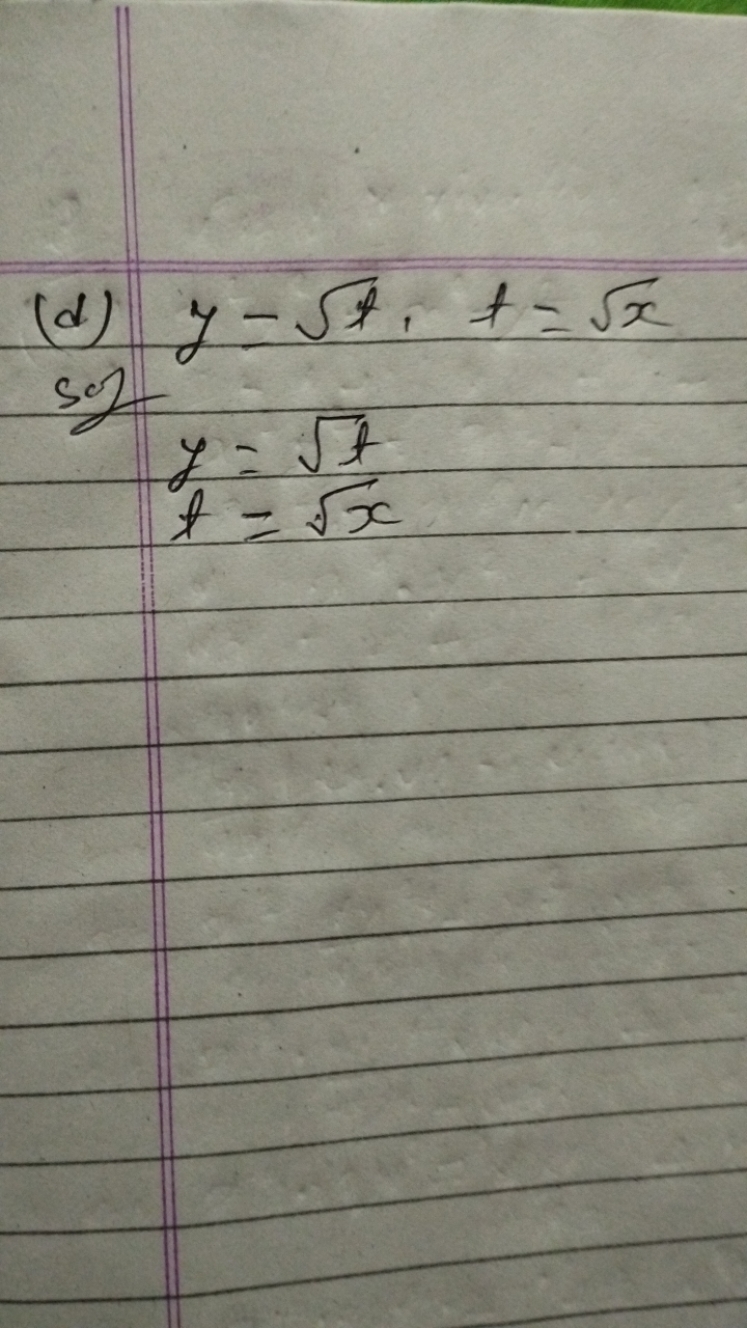 (d) y = √t, t = √x
Sol
y = √t
t = √x